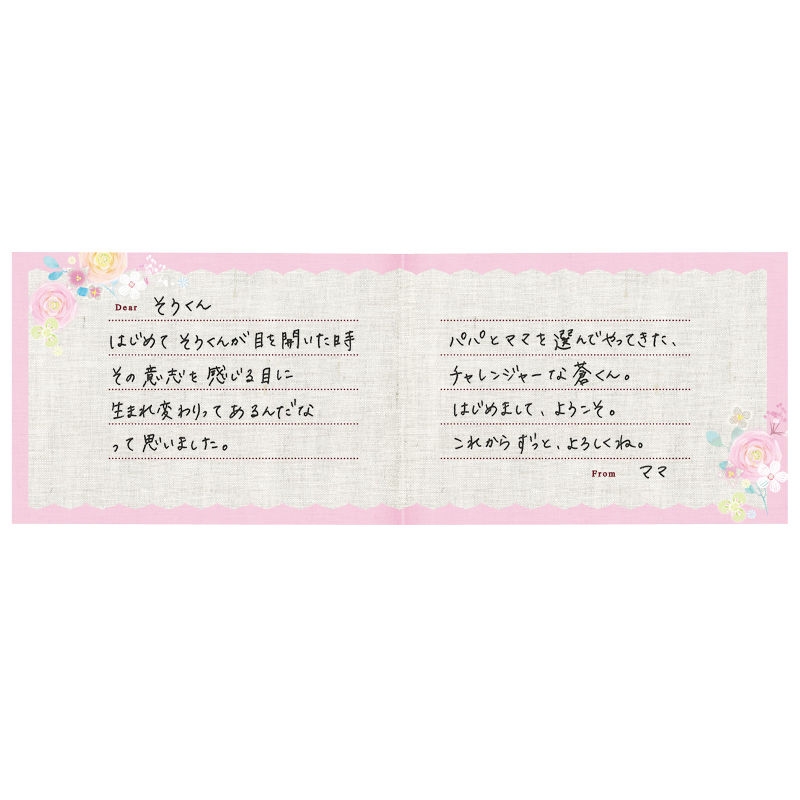 Dear そうくん
はじめて そうくんが 目を開いた時
その 意志を 感じる目に
生まれ変わりって あるんだな
って 思いました。
パパとママを選んでやってきた、
チャレンジャーな蒼くん。
はじめまして、ようこそ。
これから ずっと、よろしくね。
From ママ